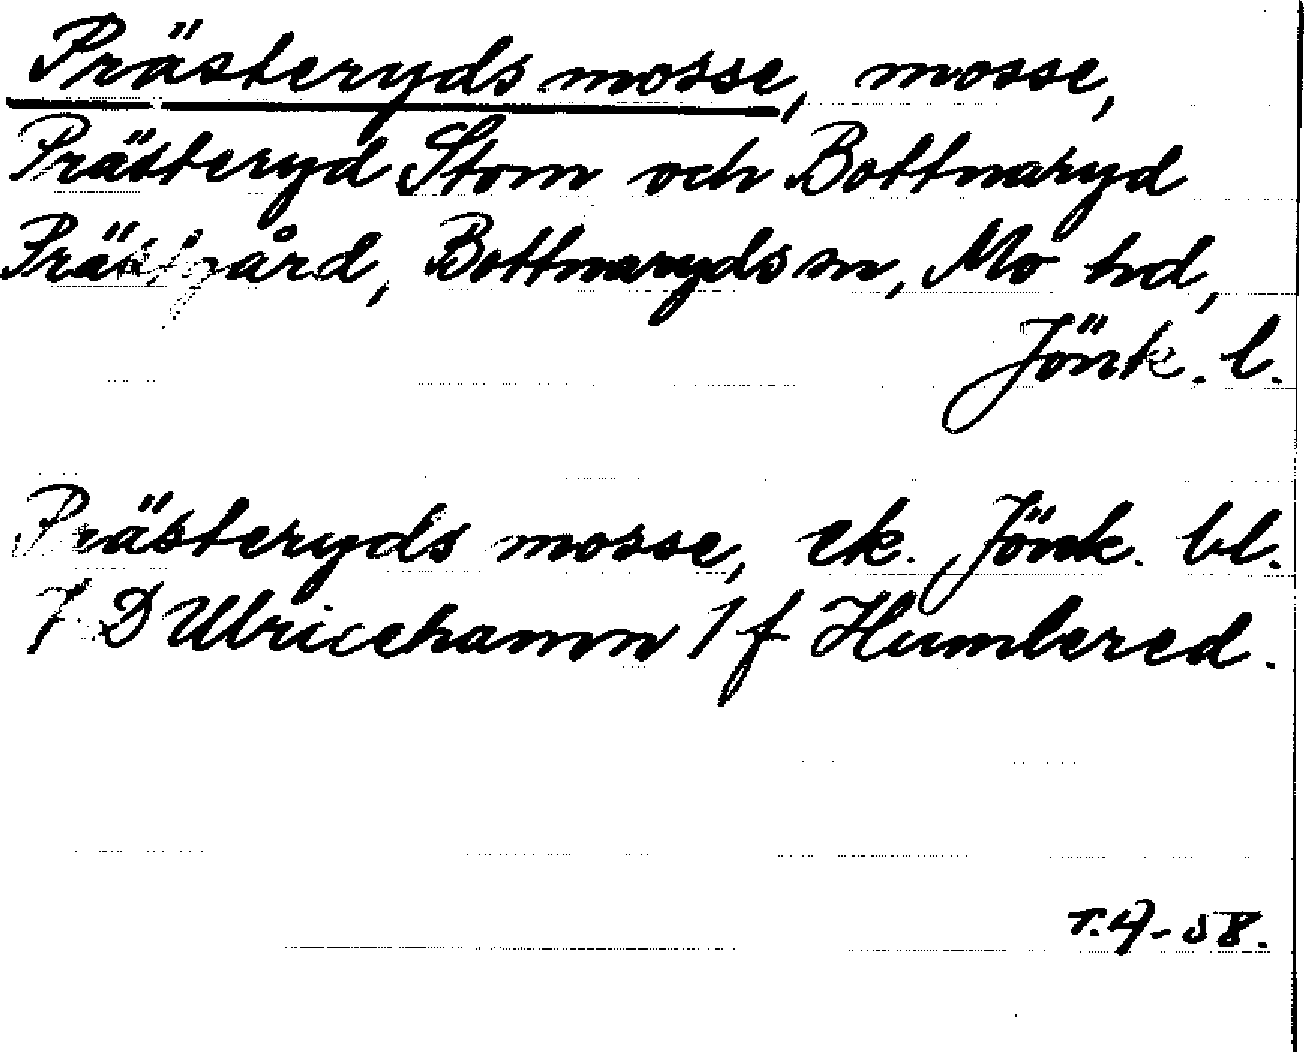 Prästeryds mosse, mosse,
Prästeryd Stom och Bottnaryd
Prästgård, Bottnaryds sn, Mo hd,
Jönk. l.
Prästeryds mosse, ek. Jönk. bl.
7 D Ulricehamn 1 f Humlered.
T.A-58.